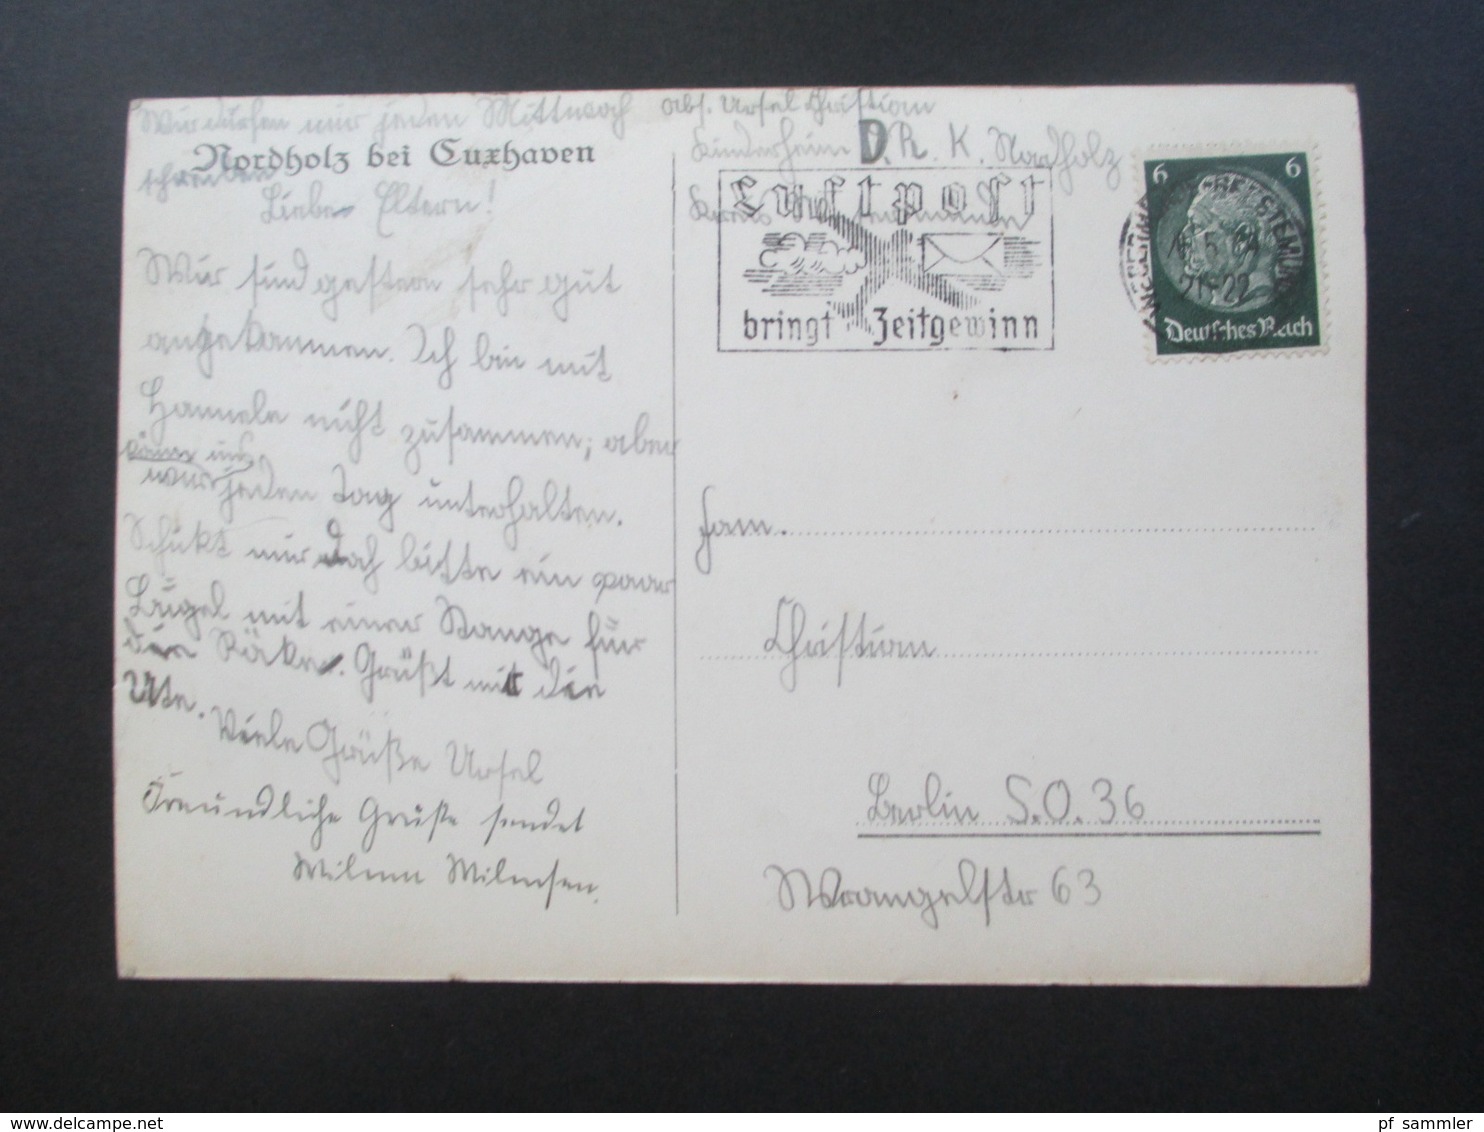 Wir dürfen nur jeden Mittwoch
schreiben
Nordholz bei Cuxhaven
Liebe Eltern!
Wir sind gestern sehr gut
angekommen. Ich bin mit
Hannele nicht zusammen, aber
könn uns
wir jeden Tag unterhalten.
Schikt mir doch bitte ein paar
Bügel mit einer Stange für
die Röke. Grüßt mir die
Ute.
Viele Grüße Ursel
Freundliche Grüße sendet
Abs. Ursel Christian
Kinderheim D.R.K. Nordholz
Kreis
Luftpost
bringt Zeitgewinn
6 6
21-22
Deutsches Reich
Fam.
Christian
Berlin S.O. 36
Wrangelstr 63
pf_sammler